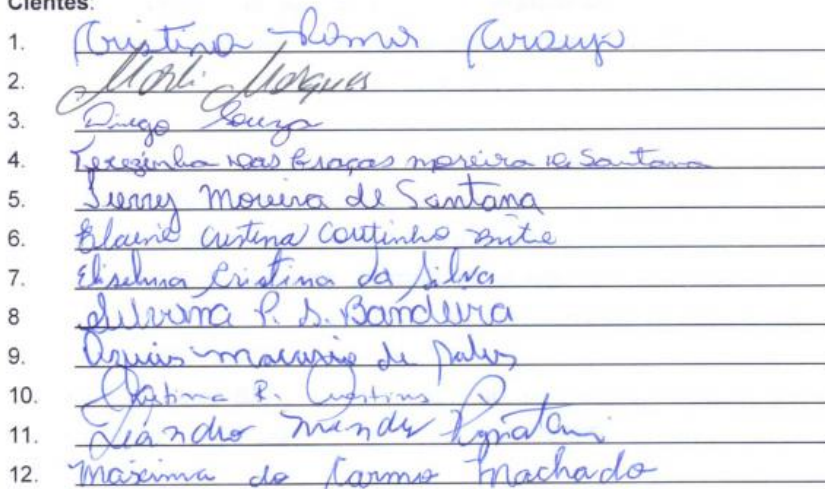 Cientes:
1. Cristina Ramos Araujo
2. Marli Marques
3. Diego Souza
4. Terezinha das Graças moreira de Santana
5. Moreira de Santana
6. Elaine Cristina Coutinho
7. Cristina da Silva
8 Silvana P. S. Bandeira
9. de
10. Cristina R.
11. Leandro
12. Maxima do Carmo Machado